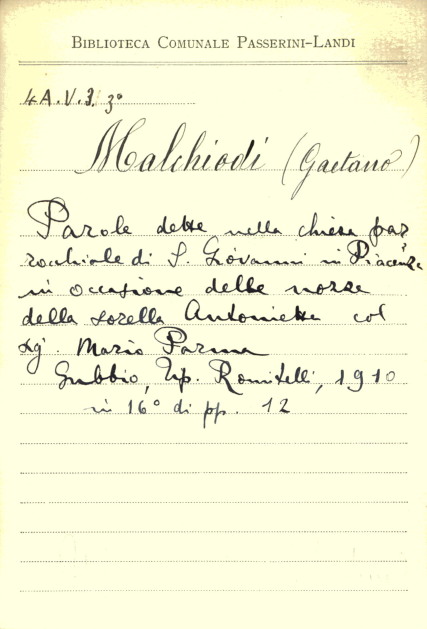 BIBLIOTECA COMUNALE PASSERINI-LANDI
4A.V.3. 3º
Malchiodi (Gaetano)
Parole dette nella chiesa par
rocchiale di S. Giovanni in Piacenza
in occasione delle nozze
della sorella Antoniette col
sg. Mario Parma
Gubbio, Tip. Romitelli, 1910
in 16º di pp. 12